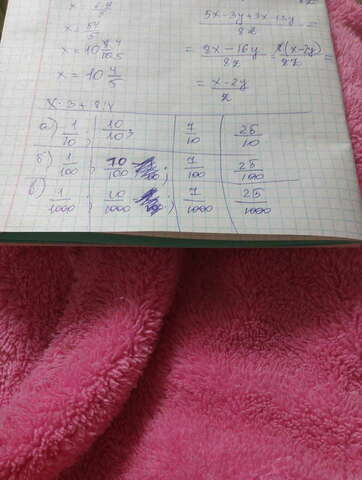 x = 54/5
x = 10 8/10
x = 10 4/5
5x-3y+3x-13y / 8z =
= 8x-16y / 8z = 8(x-2y) / 8z
= x-2y / z
а) 1/10; 10/10; 7/10 25/10
б) 1/100; 10/100; 7/100 25/100
в) 1/1000; 10/1000; 7/1000 25/1000